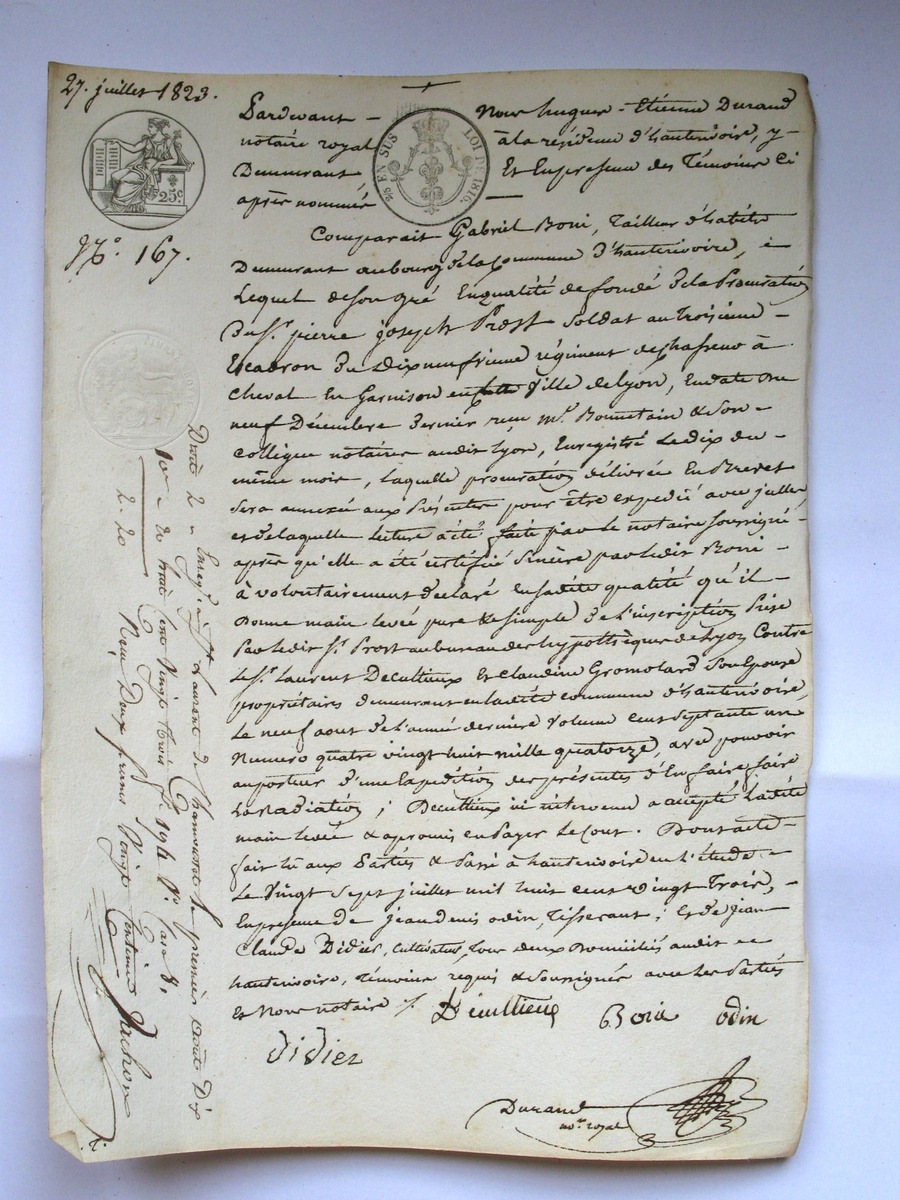 27. juillet 1823.
Pardevant - Nous hugues - Etienne Durand
notaire royal à la résidence d'hauterivoire, y
Demeurant Et En presence des Témoins Ci
après nommés
25c
2/5 EN SUS LOI DE 1816.
N.º 167.
Comparait Gabriel Boni, Tailleur d'habits
Demeurant au bourg de la Commune d'hauterivoire,
Lequel de son gré En qualité de fondé de la Procuration
Du S.r pierre joseph Prost Soldat au Troisieme
Escadron Du Dixneufvieme régiment de Chasseurs à
Cheval En Garnison en Ville de Lyon, En date Du
neuf Décembre Dernier reçu m.e Bonnetain & Son
Collègue notaires audit Lyon, Enregistré Le dix du
même mois, Laquelle procuration délivrée En Brevet
Sera annexée aux Présentes pour être expedié avec juelles
et de laquelle lecture a été faite par le notaire soussigné
après qu'elle a été certifié Sincère par ledit Boni
à volontairement déclaré en sadite qualité qu'il
Donne main levée pure & simple De l'inscription Prise
Par ledit S.r Prost au bureau des hypothèques de Lyon Contre
Le S.r Laurent Decultieux Et Claudine Gromolard Son Epouse
propriétaires demeurant en ladite commune d'hauterivoire,
Le neuf aout De l'année derniere Volume cent Septante un
Numero quatre vingt huit mille quatorze, avec pouvoir
au porteur d'une Expédition des présentes d'En faire faire
La radiation ; Decultieux ici intervenu a accepté Ladite
main levée & a promis en Payer Le Cout. Dont acte
fait lû aux Parties & Passé à hauterivoire en l'étude
Le Vingt Sept juillet mil huit cent Vingt Trois,
En presence de jean denis odin, Tisserant ; Et de jean
Claude Didier, Cultivateur, Tous deux Domiciliés audit
hauterivoire, Témoins requis & Soussignés avec les Parties
Et Nous notaire ./.
Décultieux Boni odin
didier
Durand
no.re royal
Droit 2 " Enreg.é à S.t Laurent de Chamousset le premier août Dix
10e " 20 huit cent Vingt trois f.o 194 V.o Case 8.
2. 20 Reçu Deux francs Vingt Centimes